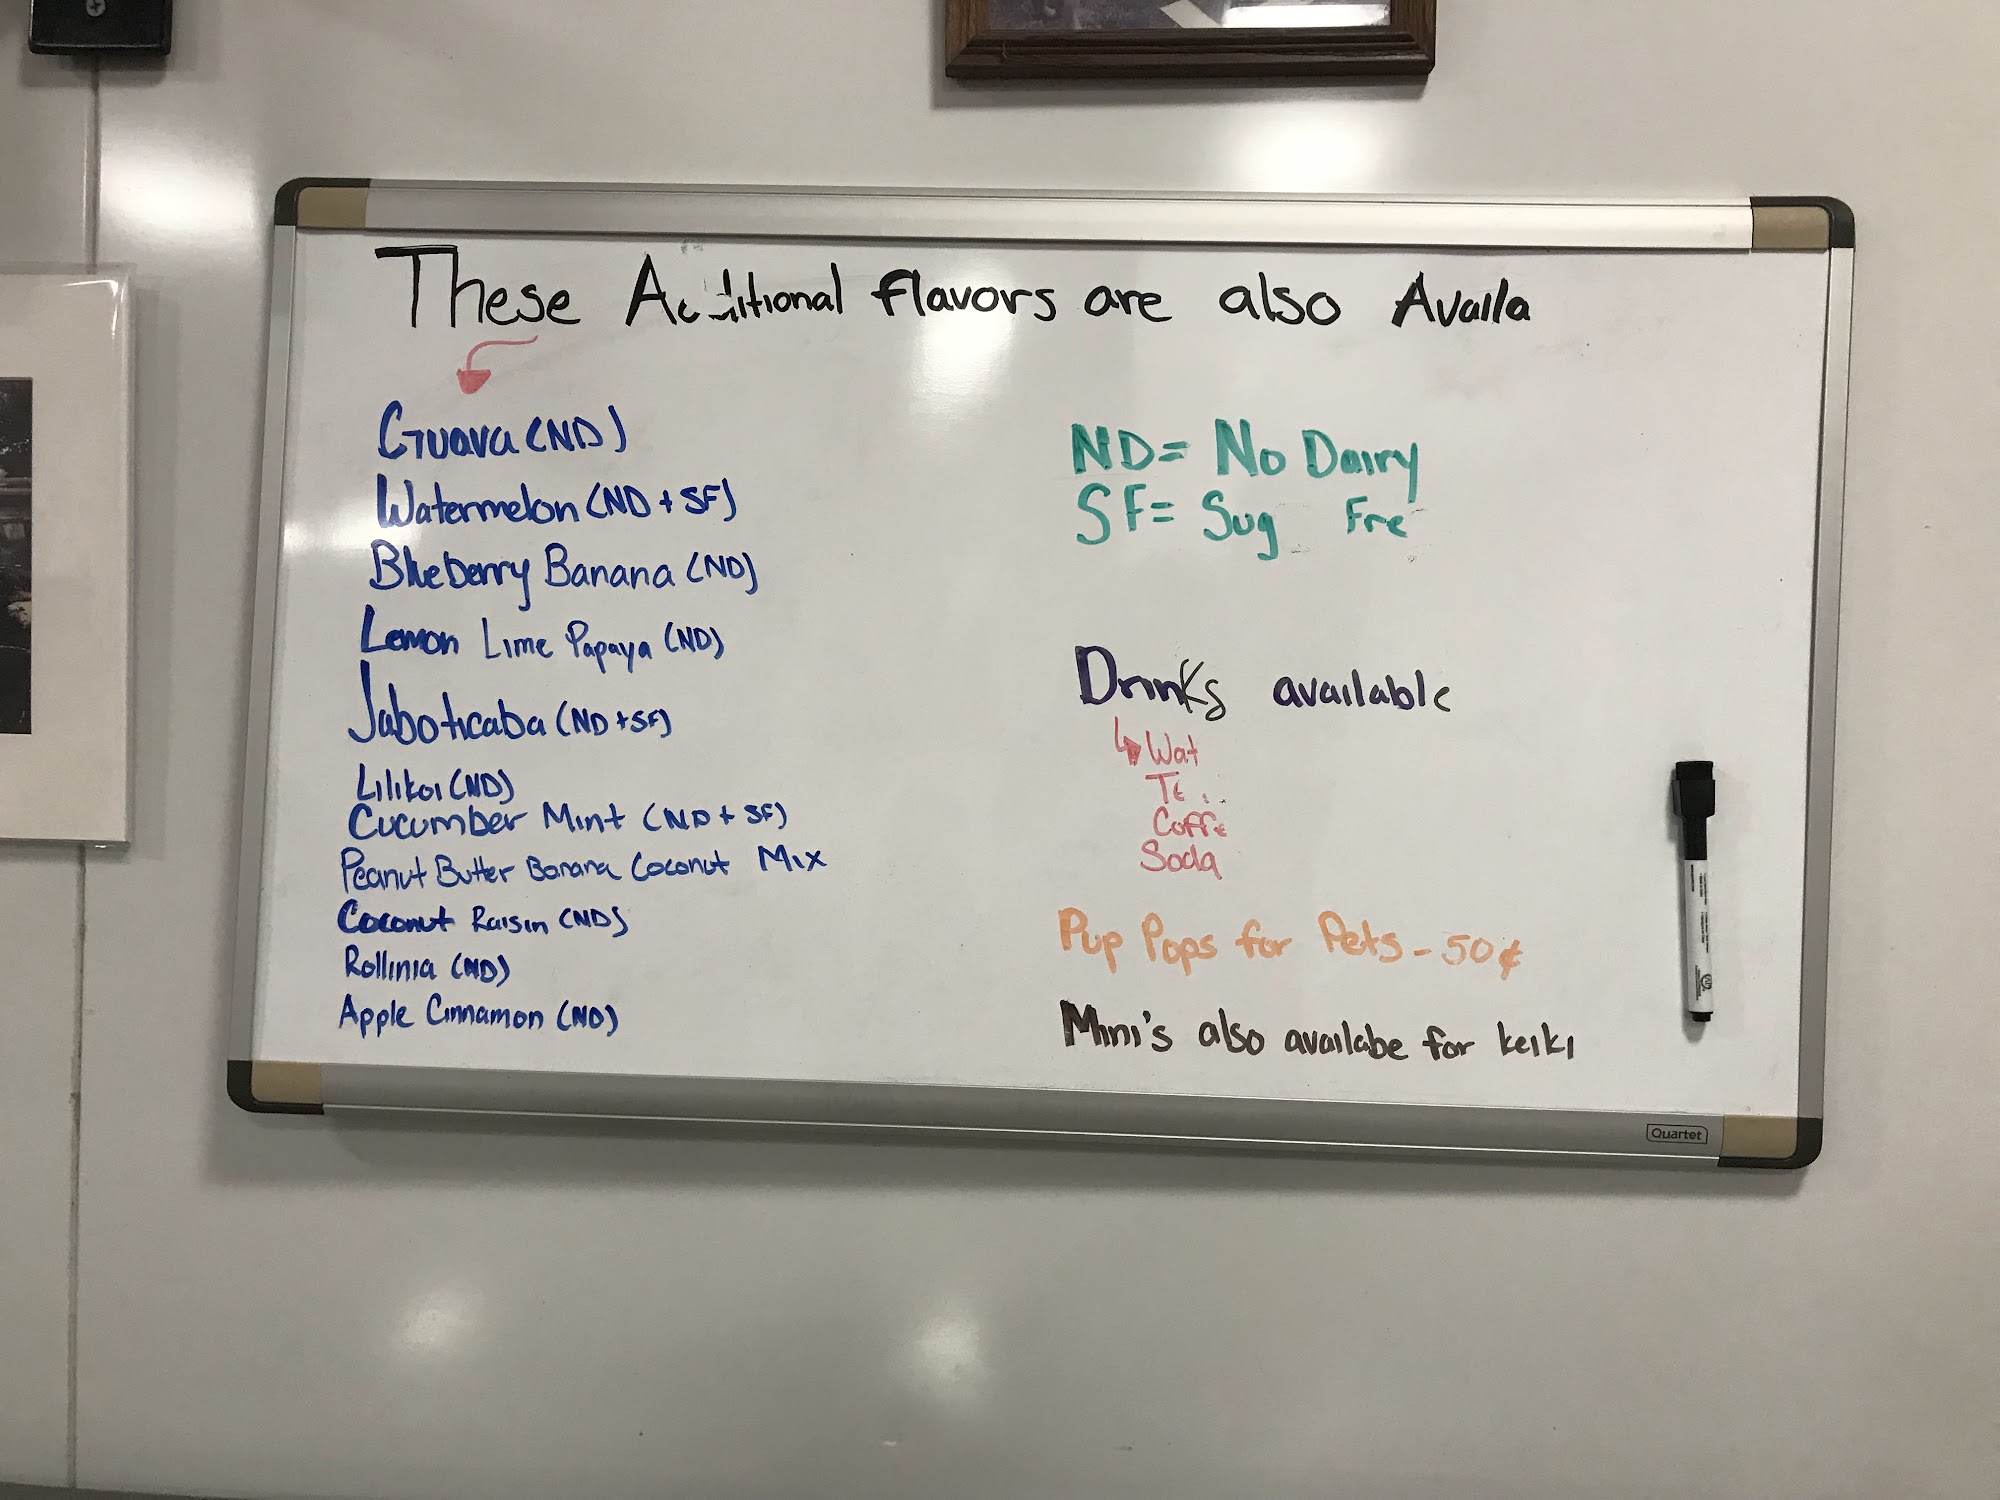 These Additional flavors are also Availa
Guava (ND)
Watermelon (ND + SF)
Blueberry Banana (ND)
Lemon Lime Papaya (ND)
Jaboticaba (ND + SF)
Lilikoi (ND)
Cucumber Mint (ND + SF)
Peanut Butter Banana Coconut Mix
Coconut Raisin (ND)
Rollinia (ND)
Apple Cinnamon (ND)
ND = No Dairy
SF = Sug Fre
Drinks available
Wat
Te
Coffe
Soda
Pup Pops for Pets - 50¢
Mini's also availabe for keiki
Quartet